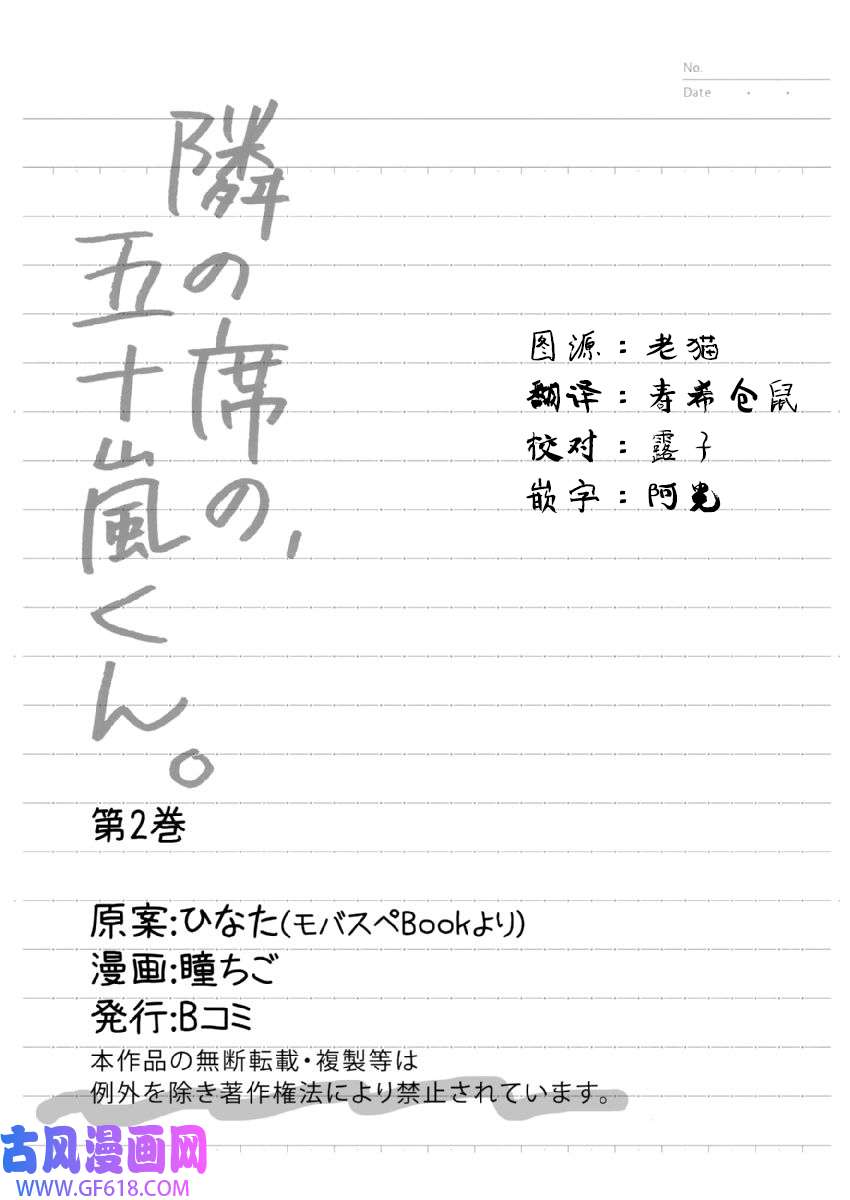 No.
Date
隣の席の、
五十嵐くん。
图源：老猫
翻译：寿希仓鼠
校对：露子
嵌字：阿光
第2巻
原案:ひなた(モバスペBookより)
漫画:瞳ちご
発行:Bコミ
本作品の無断転載・複製等は
例外を除き著作権法により禁止されています。
古风漫画网
WWW.GF618.COM